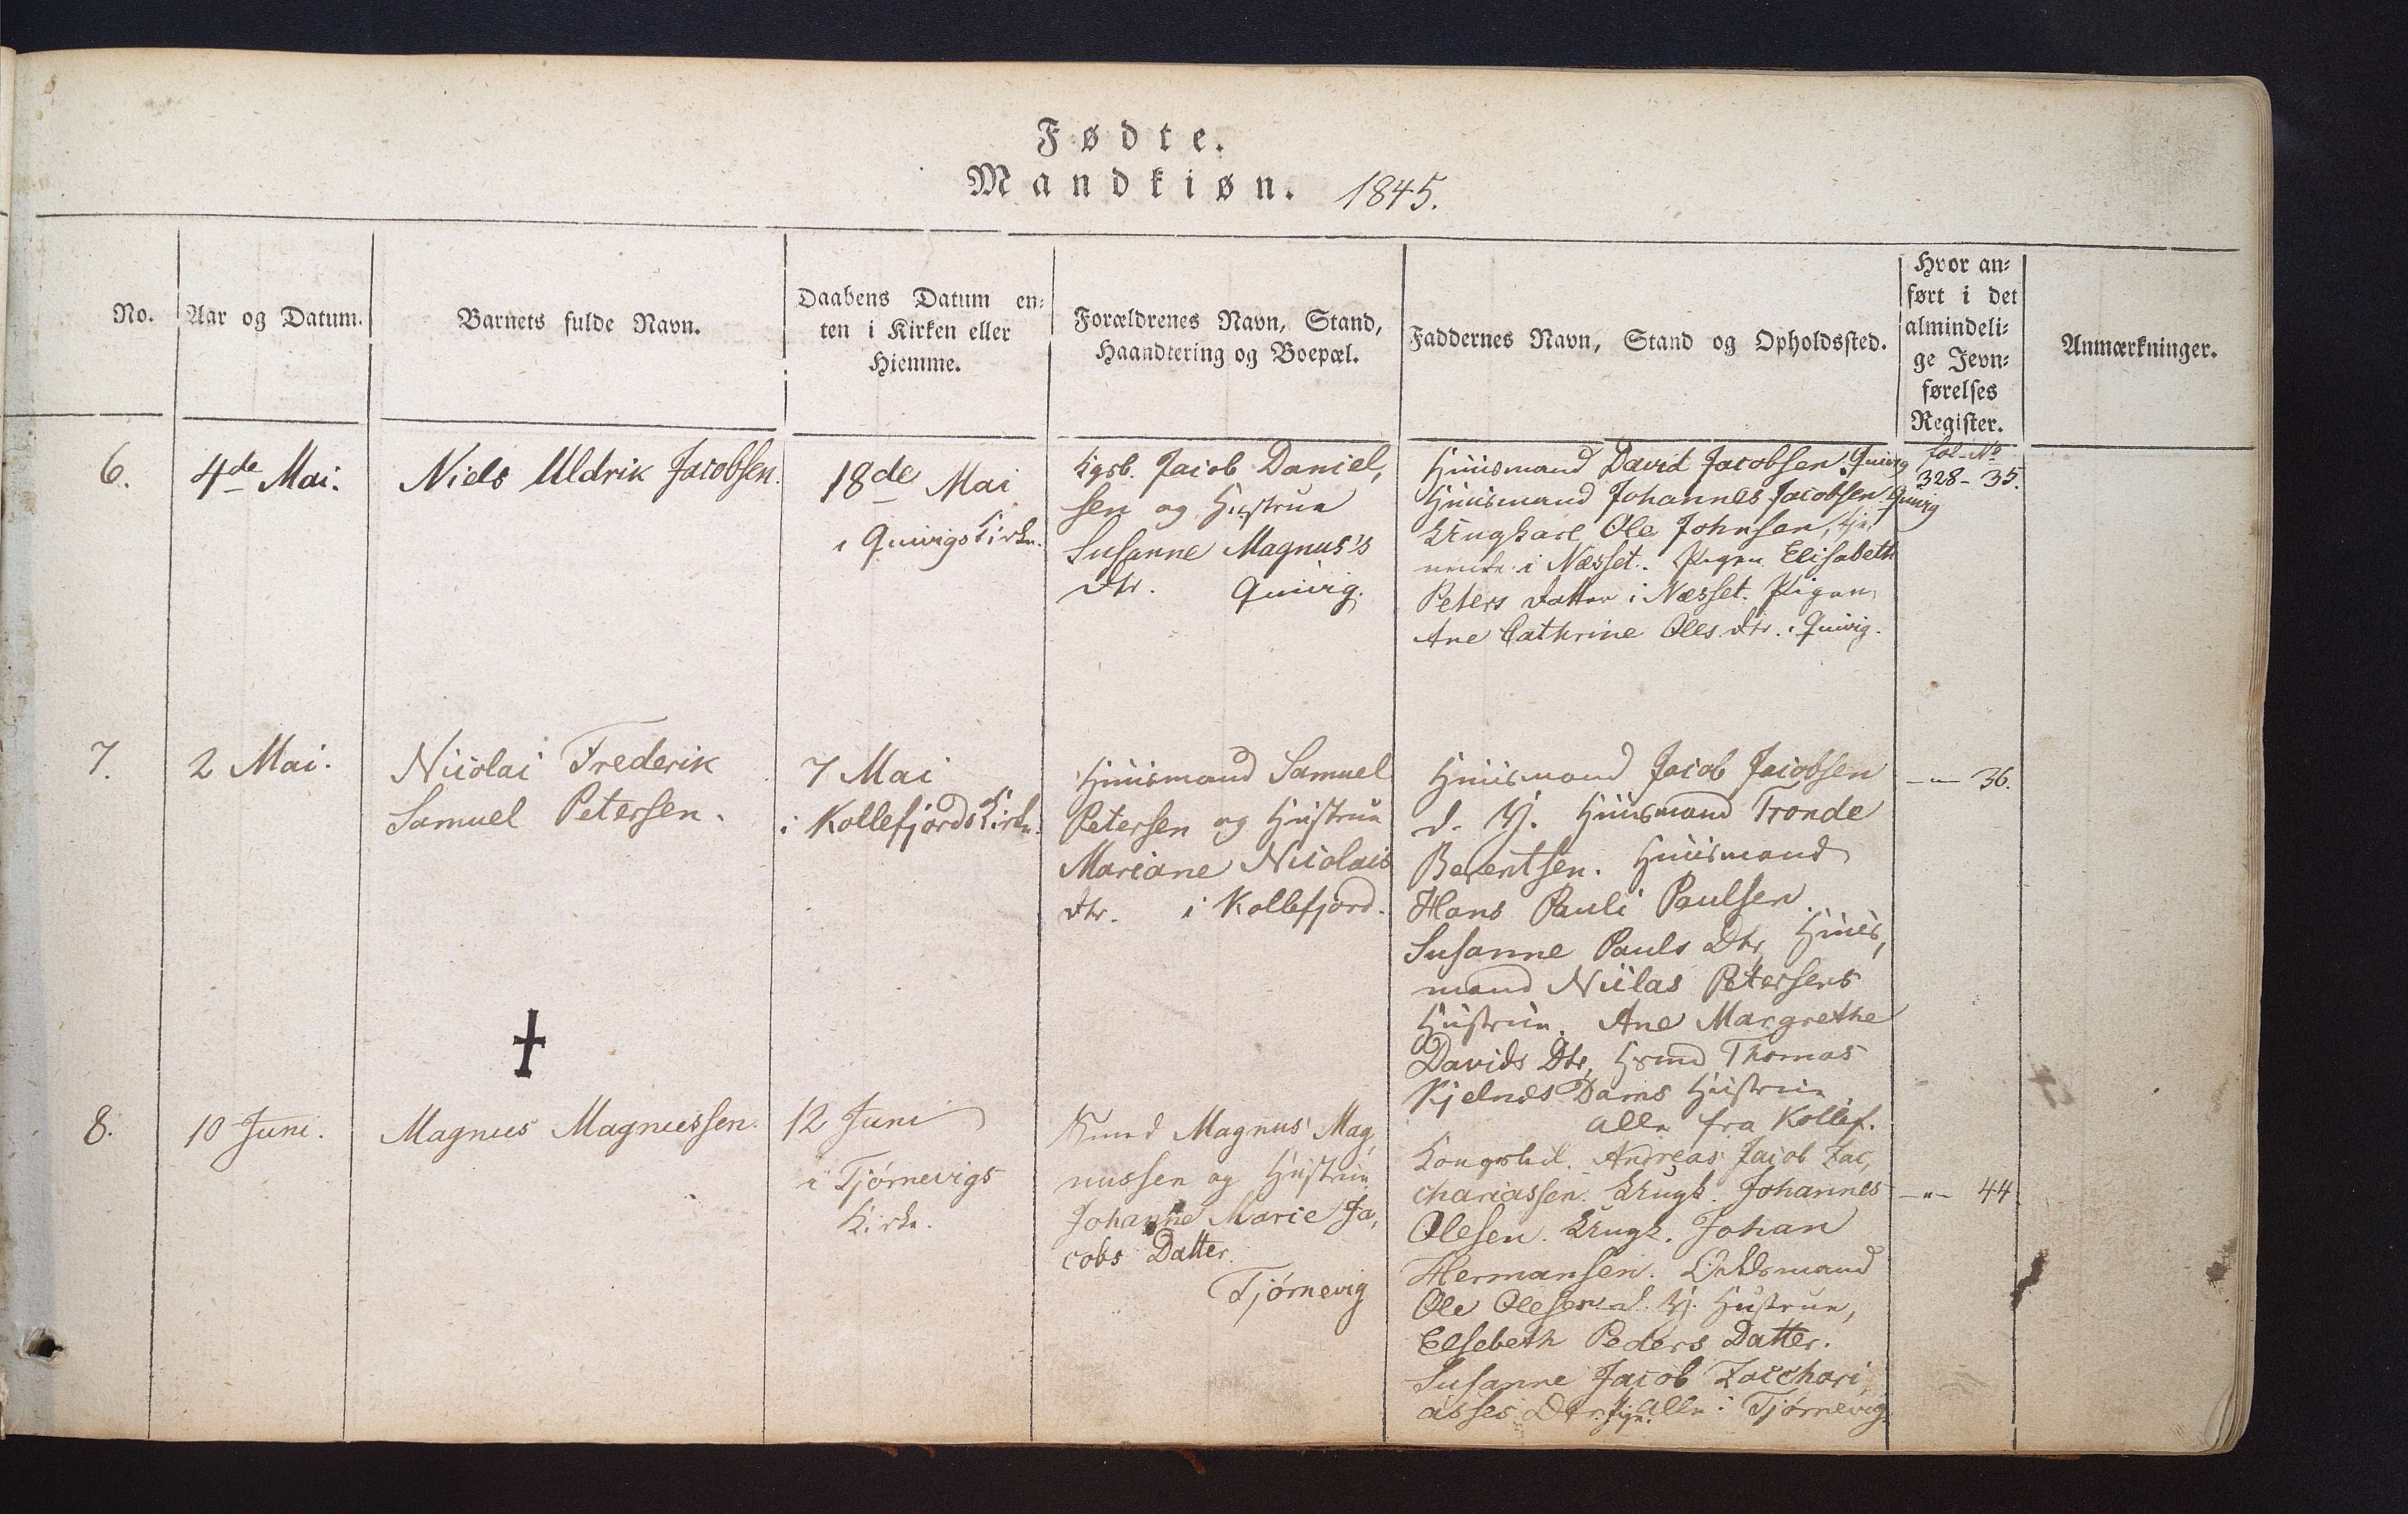 Fødte.
Mandkiøn. 1845.
No.
Aar og Datum.
Barnets fulde Navn.
Daabens Datum en-
ten i Kirken eller
Hiemme.
Forældrenes Navn, Stand,
Haandtering og Boepæl.
Faddernes Navn, Stand og Opholdssted.
Hvor an-
ført i det
almindeli-
ge Jevn-
førelses
Register.
Anmærkninger.
6.
4de Mai.
Niels Uldrik Jacobsen.
18de Mai
i Quivigs Kirke.
Kgsb. Jacob Daniel,
sen og Hustrue
Susanne Magnus's
Dtr. Quivig.
Huusmand David Jacobsen. Quivig
Huusmand Johannes Jacobsen Quivig
Ungkarl Ole Johnsen, tje,
nende i Næsset. Pigen Elisabeth
Peters Datter i Næsset. Pigen
Ane Cathrine Oles Dtr. i Quivig.
fol-No
328- 35.
7.
2 Mai.
Nicolai Frederik
Samuel Petersen.
7 Mai
i Kollefjords Kirke.
Huusmand Samuel
Petersen og Hustrue
Mariane Nicolais
Dtr. i Kollefjord.
Huusmand Jacob Jacobsen
d. Y. Huusmand Tronde
Berentsen. Huusmand
Hans Pauli Paulsen.
Susanne Pauls Dtr, Huus,
mand Niclas Petersens
Hustrue. Ane Margrethe
Davids Dtr, Hsmd Thomas
Kjelnæs Dams Hustrue
alle fra Kollef.
-"- 36.
8.
10 Juni.
†
Magnus Magnussen.
12 Juni
i Tjørnevigs
Kirke.
Magnus Mag,
nussen og Hustrue
Johanne Marie Ja,
cobs Datter
Tjørnevig
Andreas Jacob Zac,
chariassen. Ungk. Johannes
Olesen. Ungk. Johan
Hermansen.
Ole Olesen d. Y. Hustrue,
Elsebeth Peders Datter.
Susanne Jacob Zacchari,
asses Dtr. Pige. Alle i Tjørnevig
-"- 44